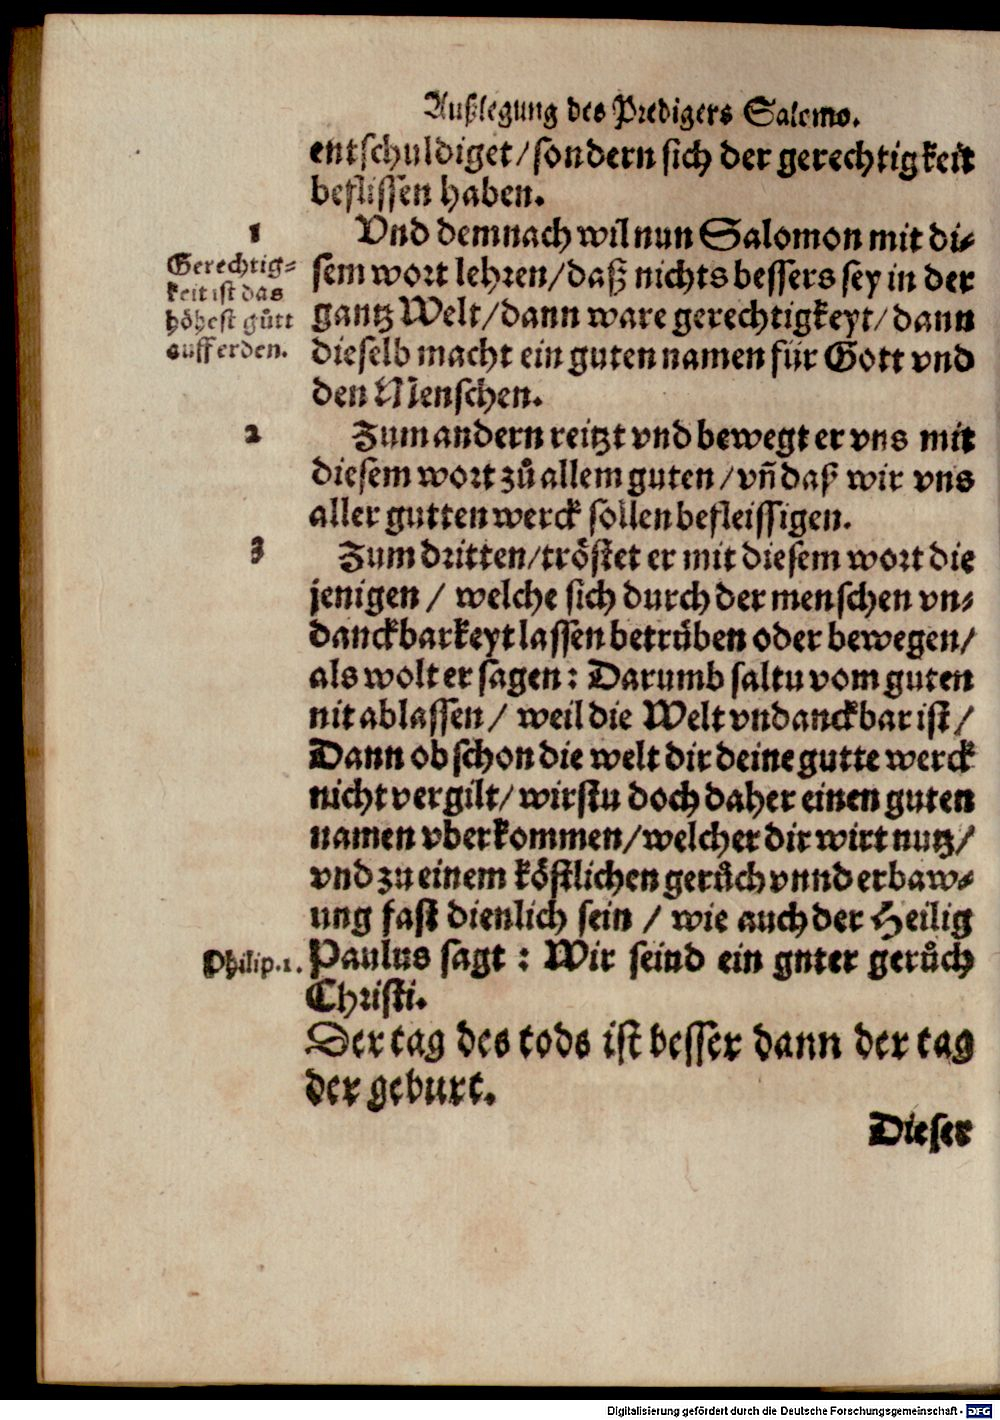 Außlegung des Predigers Salomo.
entschuldiget/sondern sich der gerechtigkeit
beflissen haben.
1
Gerechtig-
keit ist das
höhest gůtt
auff erden.
Vnd demnach wil nun Salomon mit di-
sem wort lehren/daß nichts bessers sey in der
gantz Welt/dann ware gerechtigkeyt/dann
dieselb macht ein guten namen für Gott vnd
den Menschen.
2
Zum andern reitzt vnd bewegt er vns mit
diesem wort zů allem guten/vñ daß wir vns
aller gutten werck sollen befleissigen.
3
Zum dritten/tröstet er mit diesem wort die
jenigen / welche sich durch der menschen vn-
danckbarkeyt lassen betrüben oder bewegen/
als wolt er sagen: Darumb saltu vom guten
nit ablassen/ weil die Welt vndanckbar ist/
Dann ob schon die welt dir deine gutte werck
nicht vergilt/wirstu doch daher einen guten
namen vberkommen/welcher dir wirt nutz/
vnd zu einem köstlichen gerůch vnnd erbaw-
ung fast dienlich sein / wie auch der Heilig
Philip.1.
Paulus sagt : Wir seind ein guter gerůch
Christi.
Der tag des tods ist besser dann der tag
der geburt.
Dieser
Digitalisierung gefördert durch die Deutsche Forschungsgemeinschaft - DFG